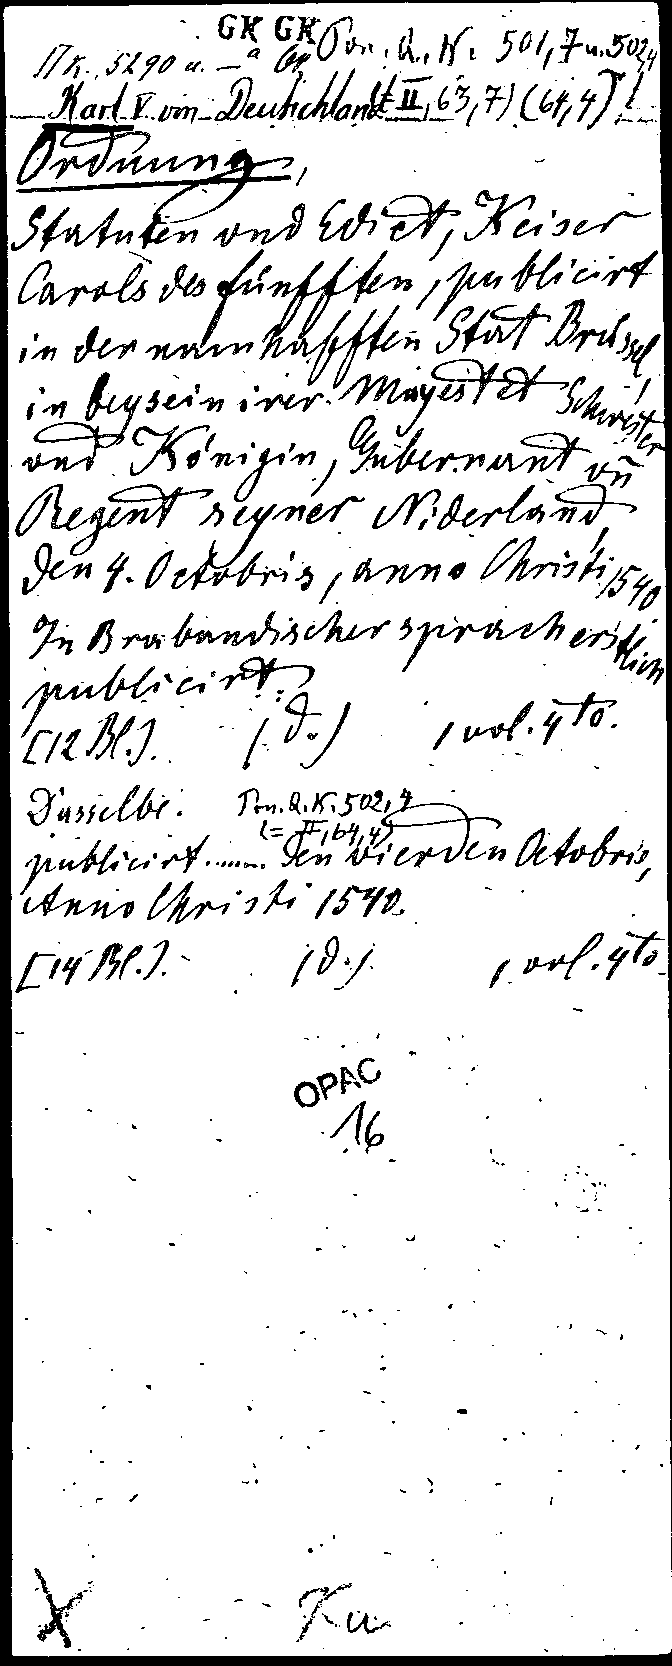 GK GK
Pk. 5290 u. — a Pon. Q. K. 501,7 u. 502,4
Karl V von Deutschland (= II, 63,7) (64,4)
Ordnung,
Statuten vnd Edict, Keiser
Carols des fünfften, publicirt
in der namhafften Stat Brüssel,
in beysein irer Mayestet Schwester
vnd Königin, Gubernant vñ
Regent seyner Niderland,
den 4. Octobris, anno Christi 1540
In Brabandischer sprach erstlich
publicirt.
[12 Bl.]. (d.) 1 vol. 4to.
Dasselbe. Pon. Q. K. 502,4
(= II, 64,4)
publicirt ...... den vierden Octobris,
Anno Christi 1540.
[14 Bl.]. (d.) 1 vol. 4to
OPAC
16
X Ka